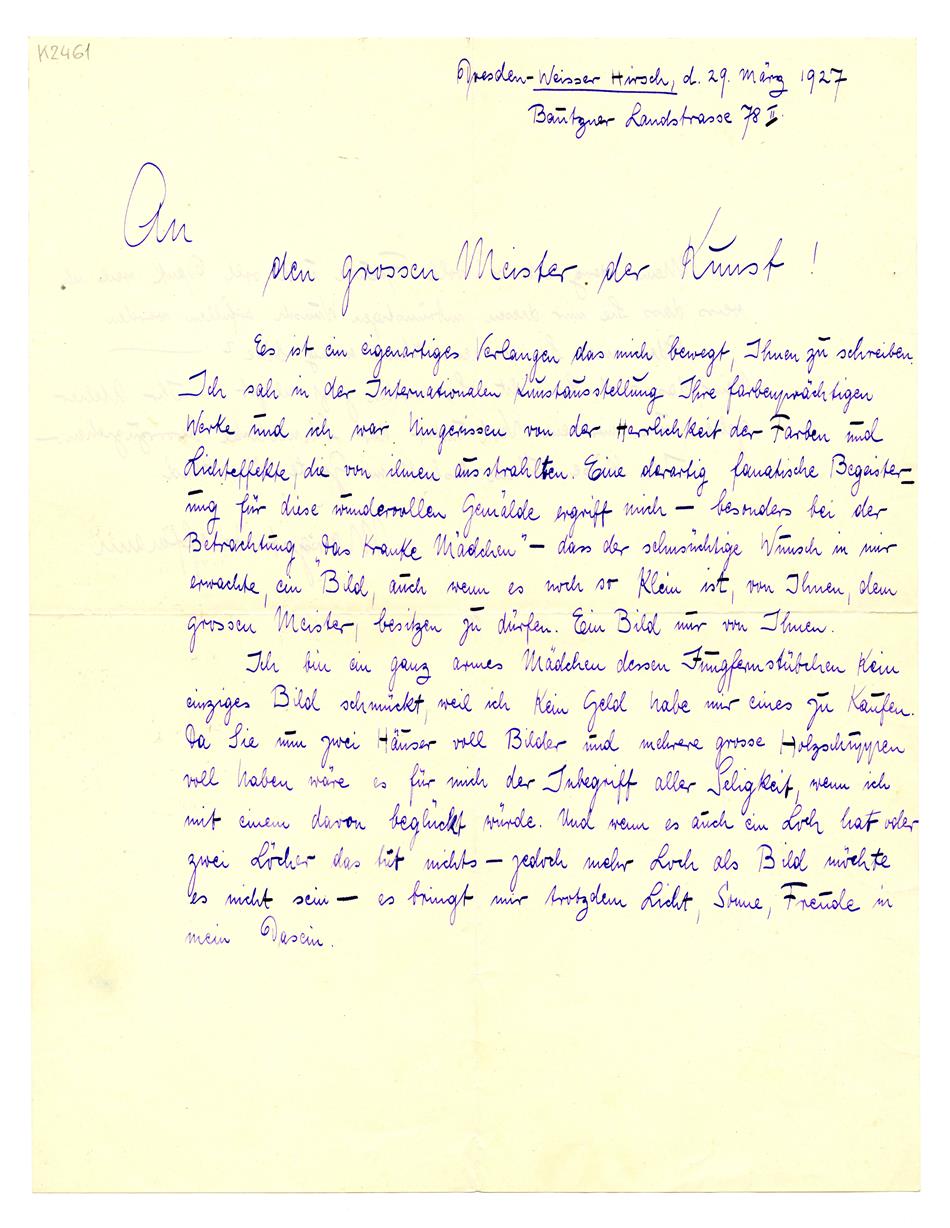 K2461
Dresden-Weisser Hirsch, d. 29. März 1927
Bautzner Landstrasse 78 II.
An
den grossen Meister der Kunst!
Es ist ein eigenartiges Verlangen das mich bewegt, Ihnen zu schreiben.
Ich sah in der Internationalen Kunstausstellung Ihre farbenprächtigen
Werke und ich war hingerissen von der Herrlichkeit der Farben und
Lichteffekte, die von ihnen ausstrahlten. Eine derartig fanatische Begeister-
ung für diese wundervollen Gemälde ergriff mich — besonders bei der
Betrachtung „Das kranke Mädchen" — dass der sehnsüchtige Wunsch in mir
erwachte, ein Bild, auch wenn es noch so klein ist, von Ihnen, dem
grossen Meister, besitzen zu dürfen. Ein Bild nur von Ihnen.
Ich bin ein ganz armes Mädchen dessen Jungfernstübchen kein
einziges Bild schmückt, weil ich kein Geld habe mir eines zu kaufen.
Da Sie nun zwei Häuser voll Bilder und mehrere grosse Holzschuppen
voll haben wäre es für mich der Inbegriff aller Seligkeit, wenn ich
mit einem davon beglückt würde. Und wenn es auch ein Loch hat oder
zwei Löcher das tut nichts — jedoch mehr Loch als Bild möchte
es nicht sein — es bringt mir trotzdem Licht, Sonne, Freude in
mein Dasein.